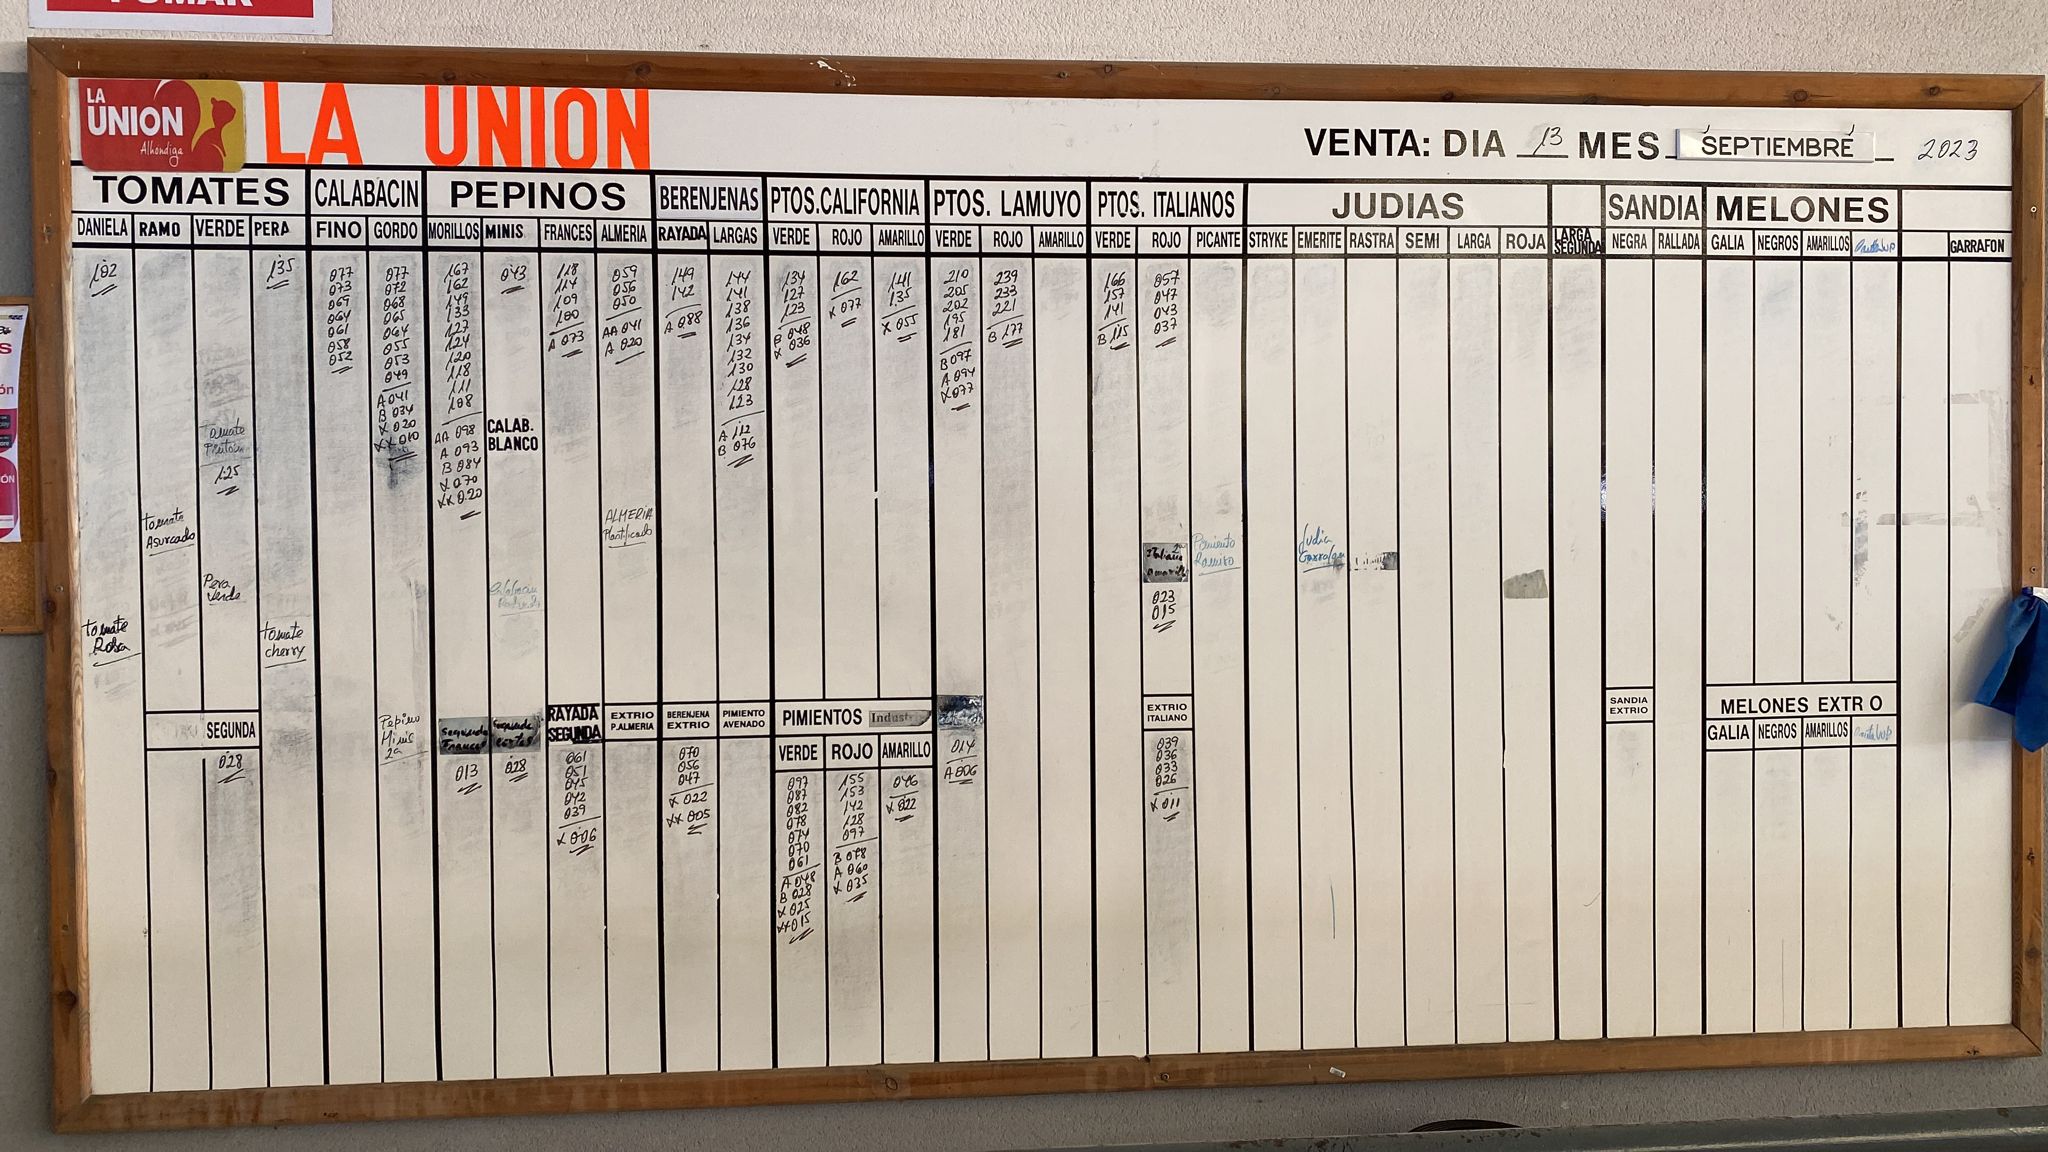 LA
UNION
Alhóndiga
LA UNION
VENTA: DIA 13 MES SEPTIEMBRE 2023
TOMATES CALABACIN PEPINOS BERENJENAS PTOS.CALIFORNIA PTOS. LAMUYO PTOS. ITALIANOS JUDIAS SANDIA MELONES
DANIELA RAMO VERDE PERA FINO GORDO MORILLOS MINIS FRANCES ALMERIA RAYADA LARGAS VERDE ROJO AMARILLO VERDE ROJO AMARILLO VERDE ROJO PICANTE STRYKE EMERITE RASTRA SEMI LARGA ROJA LARGA SEGUNDA NEGRA RALLADA GALIA NEGROS AMARILLOS GARRAFON
102
Tomate
Rosa
Tomate
Asurcado
Tomate
125
Pera
Verde
135
Tomate
cherry
SEGUNDA
028
077
073
069
064
061
058
052
077
072
068
065
064
055
053
049
A 041
B 034
X 020
XX 010
Pepino
Minis
2a
167
162
149
133
127
124
120
118
111
108
AA 098
A 093
B 084
X 070
XX 020
Segunda
Frances
013
043
CALAB.
BLANCO
Segunda
cortas
028
118
114
109
100
A 073
RAYADA
SEGUNDA
061
051
045
042
039
X 006
059
056
050
AA 041
A 020
ALMERIA
Plastificado
EXTRIO
P.ALMERIA
149
142
A 088
BERENJENA
EXTRIO
070
056
047
X 022
XX 005
144
141
138
136
134
132
130
128
123
A 112
B 076
PIMIENTO
AVENADO
134
127
123
B 048
X 036
162
X 077
141
135
X 055
PIMIENTOS Indust
VERDE ROJO AMARILLO
097
087
082
078
074
070
061
A 048
B 028
X 025
XX 015
155
153
142
128
097
B 078
A 060
X 035
046
X 022
210
205
202
195
181
B 097
A 094
X 077
014
A 006
239
233
221
B 177
166
157
141
B 115
057
047
043
037
Italiano
Amarillo
023
015
EXTRIO
ITALIANO
039
036
033
026
X 011
Pimiento
Ramiro
Judia
Garrafon
SANDIA
EXTRIO
MELONES EXTR O
GALIA NEGROS AMARILLOS